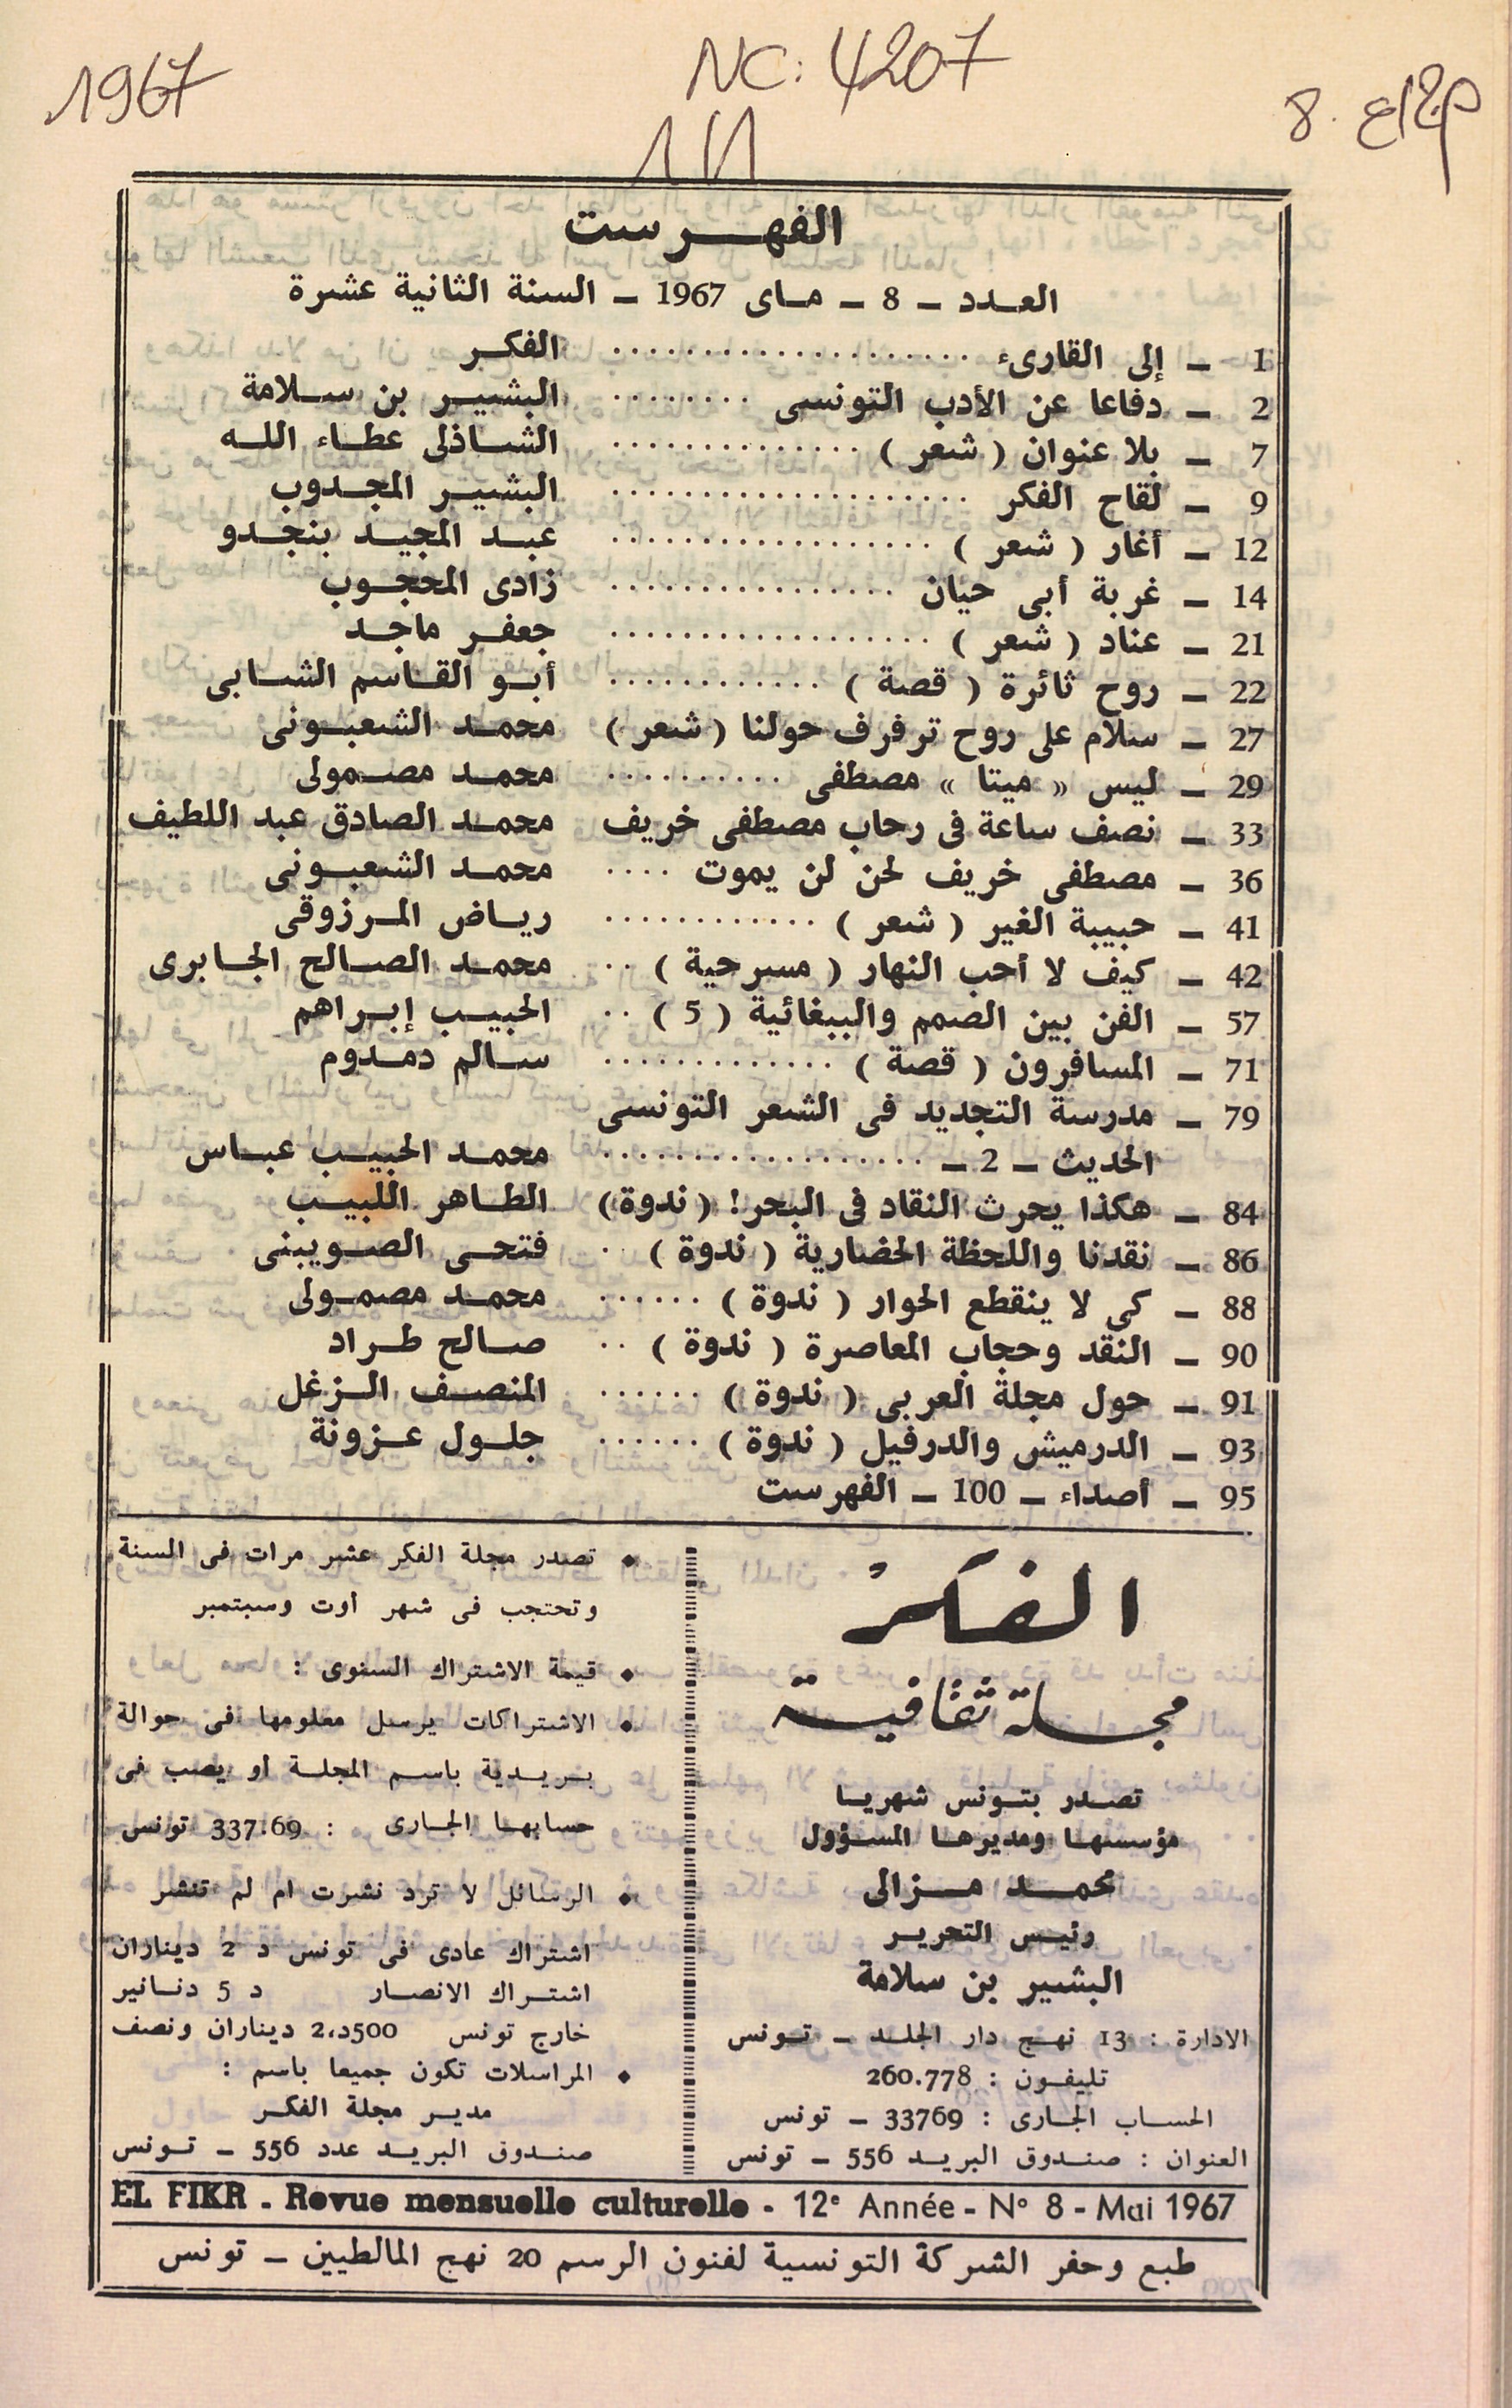 1967
NC: 4207
8.
الفهرست
العدد – 8 – ماى 1967 – السنة الثانية عشرة
1 – إلى القارىء .................... الفكر
2 – دفاعا عن الأدب التونسى ........ البشير بن سلامة
7 – بلا عنوان ( شعر ) .............. الشاذلى عطاء الله
9 – لقاح الفكر .................... البشير المجدوب
12 – أغار ( شعر ) .................. عبد المجيد بنجدو
14 – غربة أبى حيان ................ زادى المحجوب
21 – عناد ( شعر ) .................. جعفر ماجد
22 – روح ثائرة ( قصة ) ............ أبو القاسم الشابى
27 – سلام على روح ترفرف حولنا ( شعر ) محمد الشعبونى
29 – ليس « ميتا » مصطفى .......... محمد مصمولى
33 – نصف ساعة فى رحاب مصطفى خريف محمد الصادق عبد اللطيف
36 – مصطفى خريف لحن لن يموت .... محمد الشعبونى
41 – حبيبة الغير ( شعر ) ............ رياض المرزوقى
42 – كيف لا أحب النهار ( مسرحية ) .. محمد الصالح الجابرى
57 – الفن بين الصمم والببغائية ( 5 ) .. الحبيب إبراهم
71 – المسافرون ( قصة ) ............. سالم دمدوم
79 – مدرسة التجديد فى الشعر التونسى
الحديث – 2 – .................. محمد الحبيب عباس
84 – هكذا يحرث النقاد فى البحر! ( ندوة ) الطاهر اللبيب
86 – نقدنا واللحظة الحضارية ( ندوة ) .. فتحى الصويبنى
88 – كى لا ينقطع الحوار ( ندوة ) ...... محمد مصمولى
90 – النقد وحجاب المعاصرة ( ندوة ) .. صالح طراد
91 – حول مجلة العربى ( ندوة ) ...... المنصف الزغل
93 – الدرميش والدرفيل ( ندوة ) ...... جلول عزونة
95 – أصداء – 100 – الفهرست
الفكر
مجلة ثقافية
تصدر بتونس شهريا
مؤسسها ومديرها المسؤول
محمد مزالى
رئيس التحرير
البشير بن سلامة
الادارة : 13 نهج دار الجلد – تونس
تليفون : 260.778
الحساب الجارى : 33769 – تونس
العنوان : صندوق البريد 556 – تونس
• تصدر مجلة الفكر عشر مرات فى السنة
وتحتجب فى شهر أوت وسبتمبر
• قيمة الاشتراك السنوى :
• الاشتراكات يرسل معلومها فى حوالة
بريدية باسم المجلة أو يصب فى
حسابها الجارى : 337.69 تونس
• الرسائل لا ترد نشرت ام لم تنشر
اشتراك عادى فى تونس د 2 ديناران
اشتراك الانصار د 5 دنانير
خارج تونس 500د،2 ديناران ونصف
• المراسلات تكون جميعا باسم :
مدير مجلة الفكر
صندوق البريد عدد 556 – تونس
EL FIKR - Revue mensuelle culturelle - 12e Année - N° 8 - Mai 1967
طبع وحفر الشركة التونسية لفنون الرسم 20 نهج المالطيين – تونس